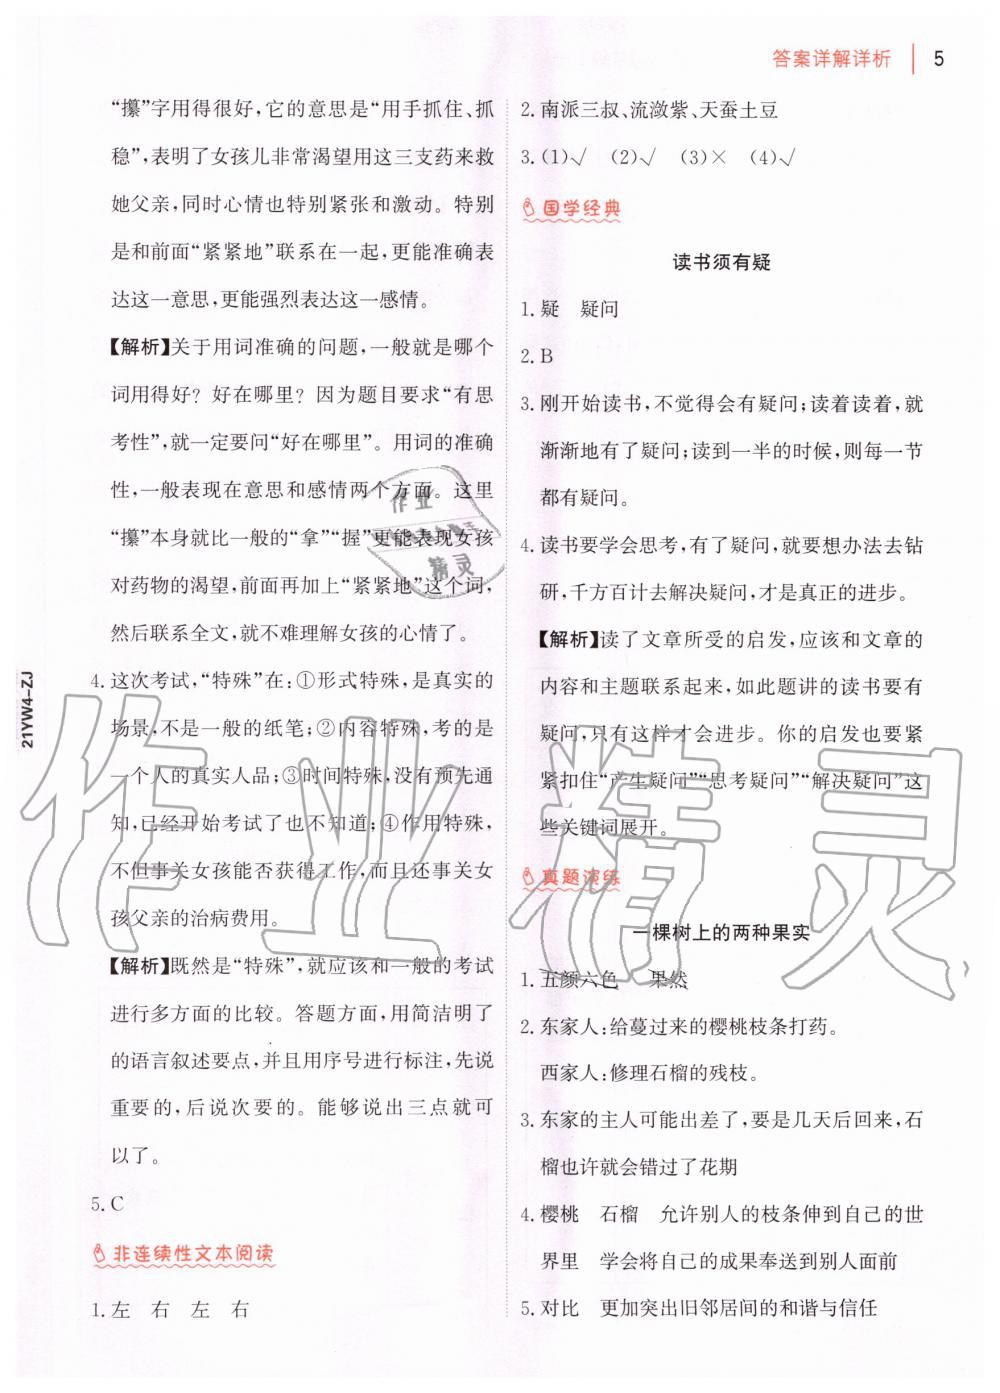 答案详解详析 5
“攥”字用得很好，它的意思是“用手抓住、抓
稳”，表明了女孩儿非常渴望用这三支药来救
她父亲，同时心情也特别紧张和激动。特别
是和前面“紧紧地”联系在一起，更能准确表
达这一意思，更能强烈表达这一感情。
【解析】关于用词准确的问题，一般就是哪个
词用得好？好在哪里？因为题目要求“有思
考性”，就一定要问“好在哪里”。用词的准确
性，一般表现在意思和感情两个方面。这里
“攥”本身就比一般的“拿”“握”更能表现女孩
对药物的渴望，前面再加上“紧紧地”这个词，
然后联系全文，就不难理解女孩的心情了。
4. 这次考试，“特殊”在：①形式特殊，是真实的
场景，不是一般的纸笔；②内容特殊，考的是
一个人的真实人品；③时间特殊，没有预先通
知，已经开始考试了也不知道；④作用特殊，
不但事关女孩能否获得工作，而且还事关女
孩父亲的治病费用。
【解析】既然是“特殊”，就应该和一般的考试
进行多方面的比较。答题方面，用简洁明了
的语言叙述要点，并且用序号进行标注，先说
重要的，后说次要的。能够说出三点就可
以了。
5. C
非连续性文本阅读
1. 左 右 左 右
2. 南派三叔、流潋紫、天蚕土豆
3. (1)√ (2)√ (3)× (4)√
国学经典
读书须有疑
1. 疑 疑问
2. B
3. 刚开始读书，不觉得会有疑问；读着读着，就
渐渐地有了疑问；读到一半的时候，则每一节
都有疑问。
4. 读书要学会思考，有了疑问，就要想办法去钻
研，千方百计去解决疑问，才是真正的进步。
【解析】读了文章所受的启发，应该和文章的
内容和主题联系起来，如此题讲的读书要有
疑问，只有这样才会进步。你的启发也要紧
紧扣住“产生疑问”“思考疑问”“解决疑问”这
些关键词展开。
真题演练
一棵树上的两种果实
1. 五颜六色 果然
2. 东家人：给蔓过来的樱桃枝条打药。
西家人：修理石榴的残枝。
3. 东家的主人可能出差了，要是几天后回来，石
榴也许就会错过了花期
4. 樱桃 石榴 允许别人的枝条伸到自己的世
界里 学会将自己的成果奉送到别人面前
5. 对比 更加突出旧邻居间的和谐与信任
21YW4-ZJ
作业精灵
作业
精灵